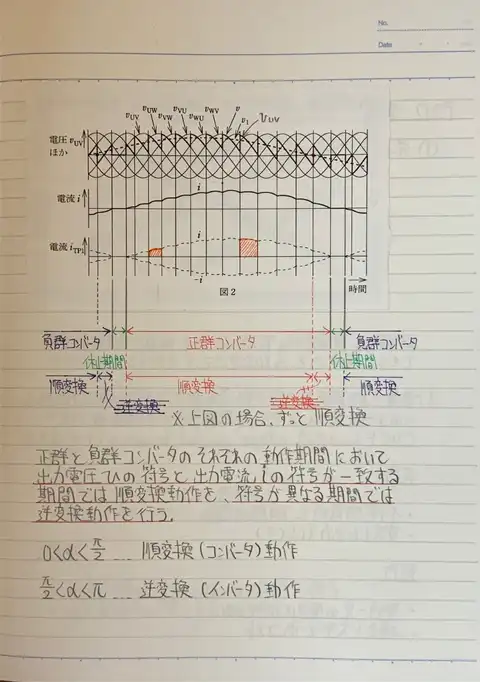 No.
Date
v_UV v_UW v_VW v_VU v_WU v_WV v v_1 v_UV
電圧 v_UV
ほか
電流 i
i
電流 i_TP1
i
-i
時間
図2
負群コンバータ 正群コンバータ 負群コンバータ
休止期間 休止期間
順変換 順変換 順変換
逆変換 逆変換
※上図の場合、ずっと順変換
正群と負群コンバータのそれぞれの動作期間において
出力電圧vの符号と、出力電流iの符号が一致する
期間では順変換動作を、符号が異なる期間では
逆変換動作を行う。
0<α<π/2 … 順変換(コンバータ)動作
π/2<α<π … 逆変換(インバータ)動作